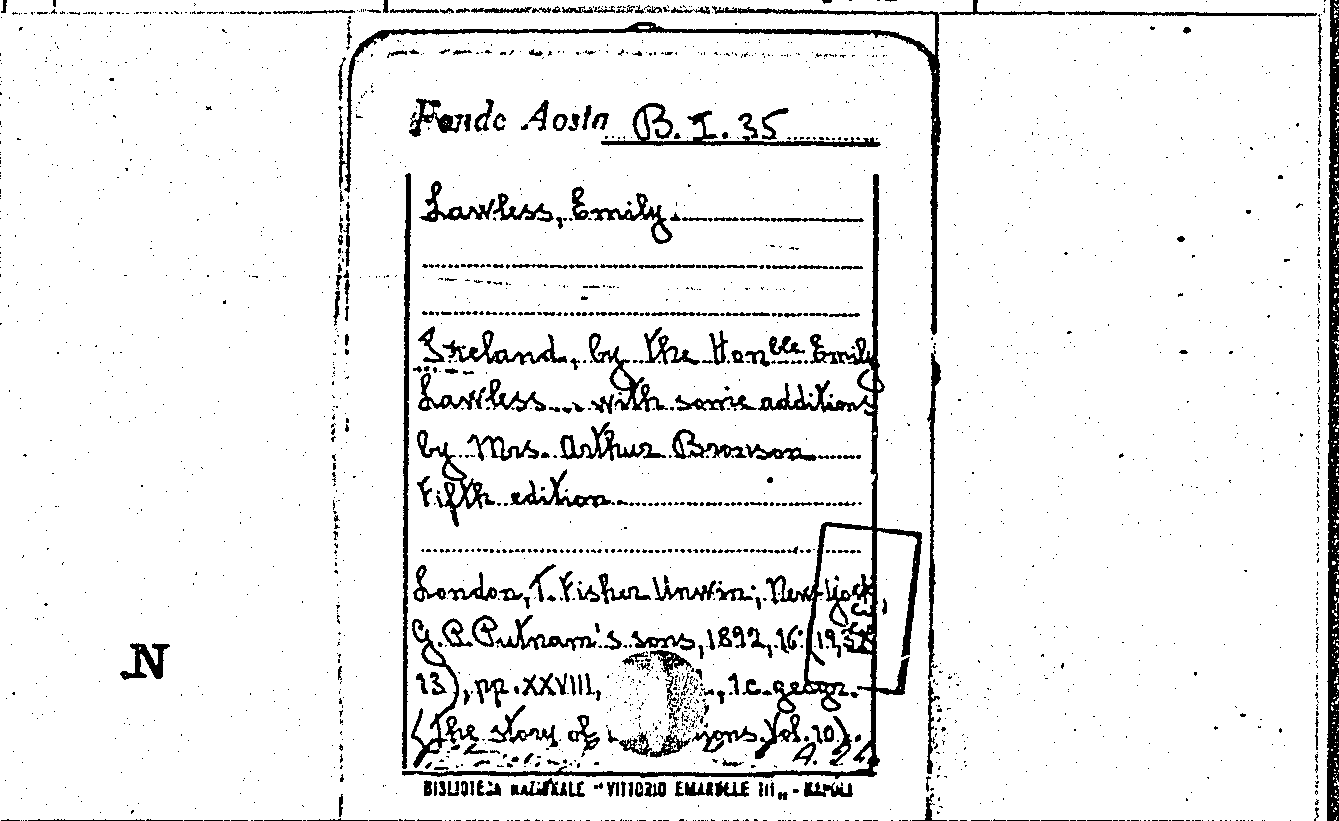 Fondo Aosta B. I. 35
Lawless, Emily.
Ireland, by the Honble Emily
Lawless... with some additions
by Mrs. Arthur Bronson
Fifth edition
London, T. Fisher Unwin; New-York,
G. P. Putnam's sons, 1892, 16° (19,5x
13), pp. XXVIII, 1 c. geogr.
(The story of Vol. 10).
BIBLIOTECA NAZIONALE "VITTORIO EMANUELE III" - NAPOLI
N